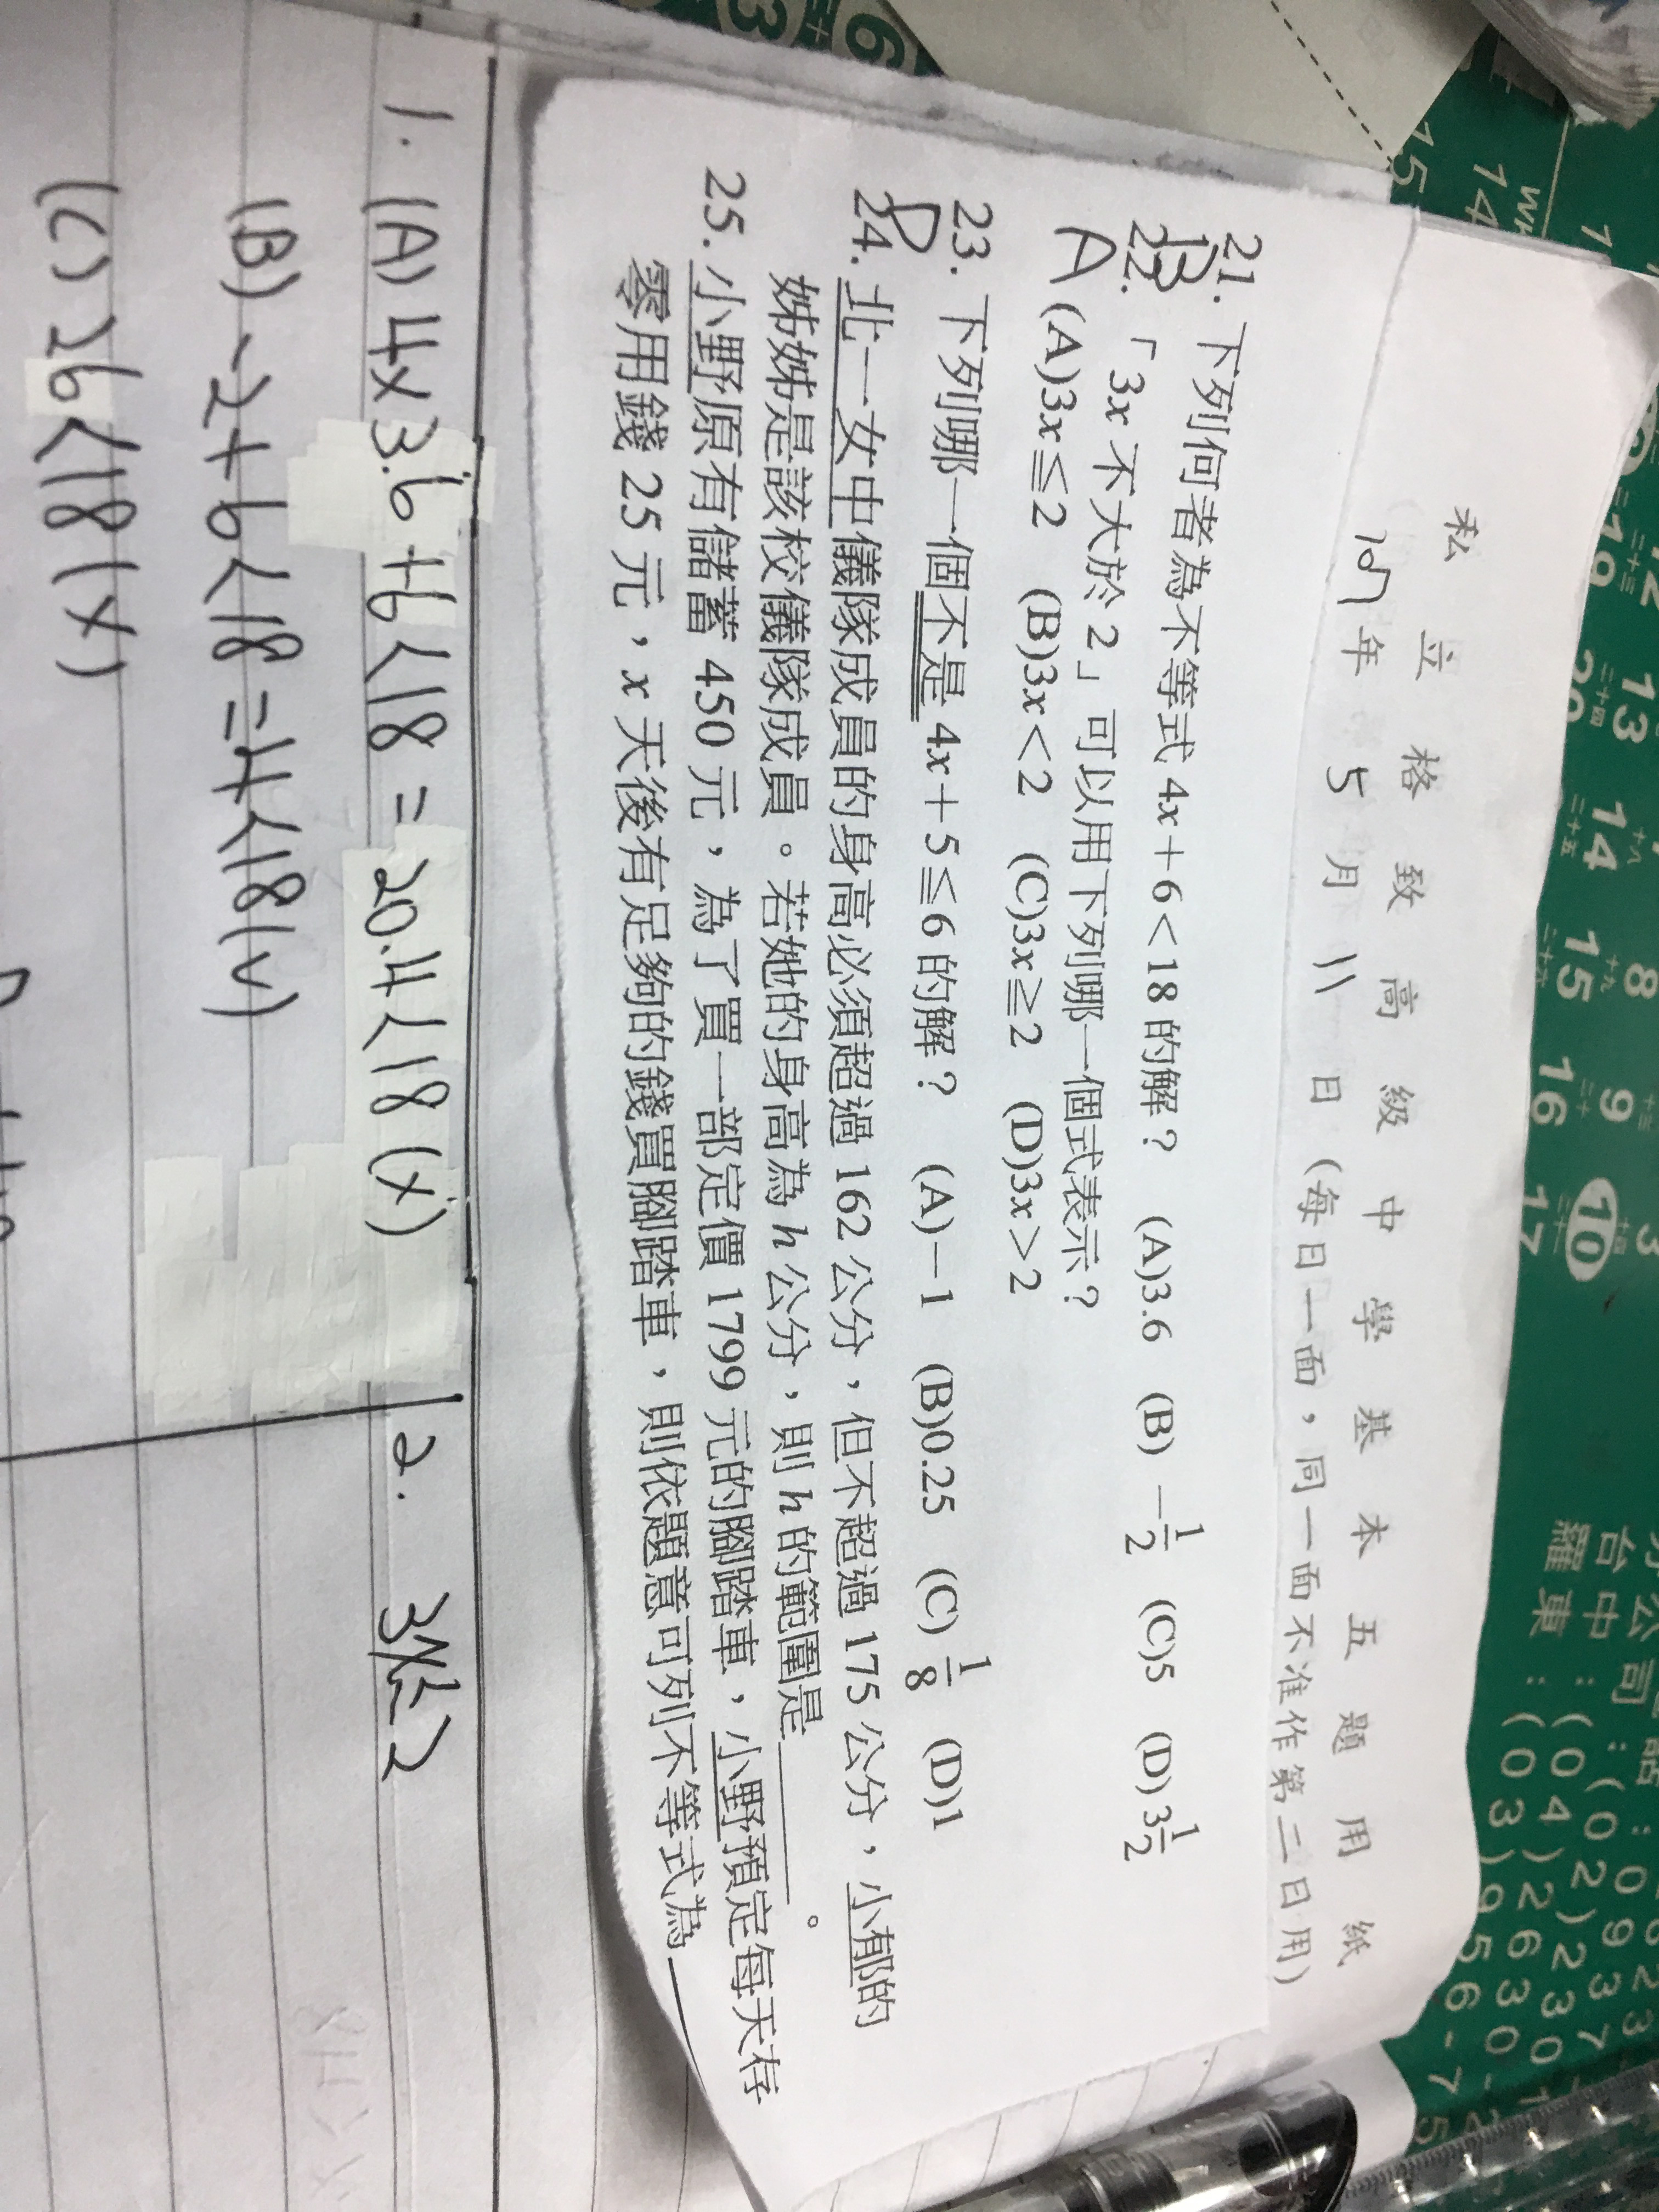 私立格致高級中學基本五題用紙
107年5月11日(每日一面,同一面不准作第二日用)
21. 下列何者為不等式 4x+6<18 的解? (A)3.6 (B)-1/2 (C)5 (D)3 1/2
B
22. 「3x 不大於 2」可以用下列哪一個式表示?
A (A)3x≦2 (B)3x<2 (C)3x≧2 (D)3x>2
23. 下列哪一個不是 4x+5≦6 的解? (A)-1 (B)0.25 (C)1/8 (D)1
D
24. 北一女中儀隊成員的身高必須超過 162 公分,但不超過 175 公分,小郁的
姊姊是該校儀隊成員。若她的身高為 h 公分,則 h 的範圍是________。
25. 小野原有儲蓄 450 元,為了買一部定價 1799 元的腳踏車,小野預定每天存
零用錢 25 元,x 天後有足夠的錢買腳踏車,則依題意可列不等式為________
1. (A) 4×3.6+6<18 = 20.4<18 (x)
(B) -2+6<18 = 4<18 (v)
(C) 26<18 (x)
2. 3x≦2
6
3
15
14
12
13
14
15
16
17
19
20
8
9
10
台中:(04)2630-
羅東:(03)956-75